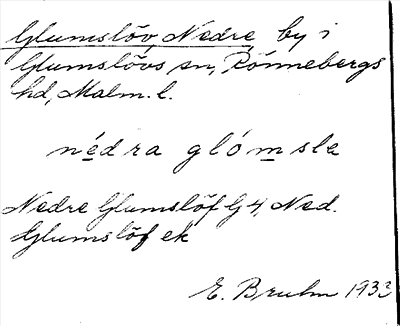 Glumslöv, Nedre by i
Glumslövs sn, Rönnebergs
hd, Malm. l.
nédra glómsle
Nedre Glumslöf G 4, Ned.
Glumslöf ek
E. Bruhn 1933